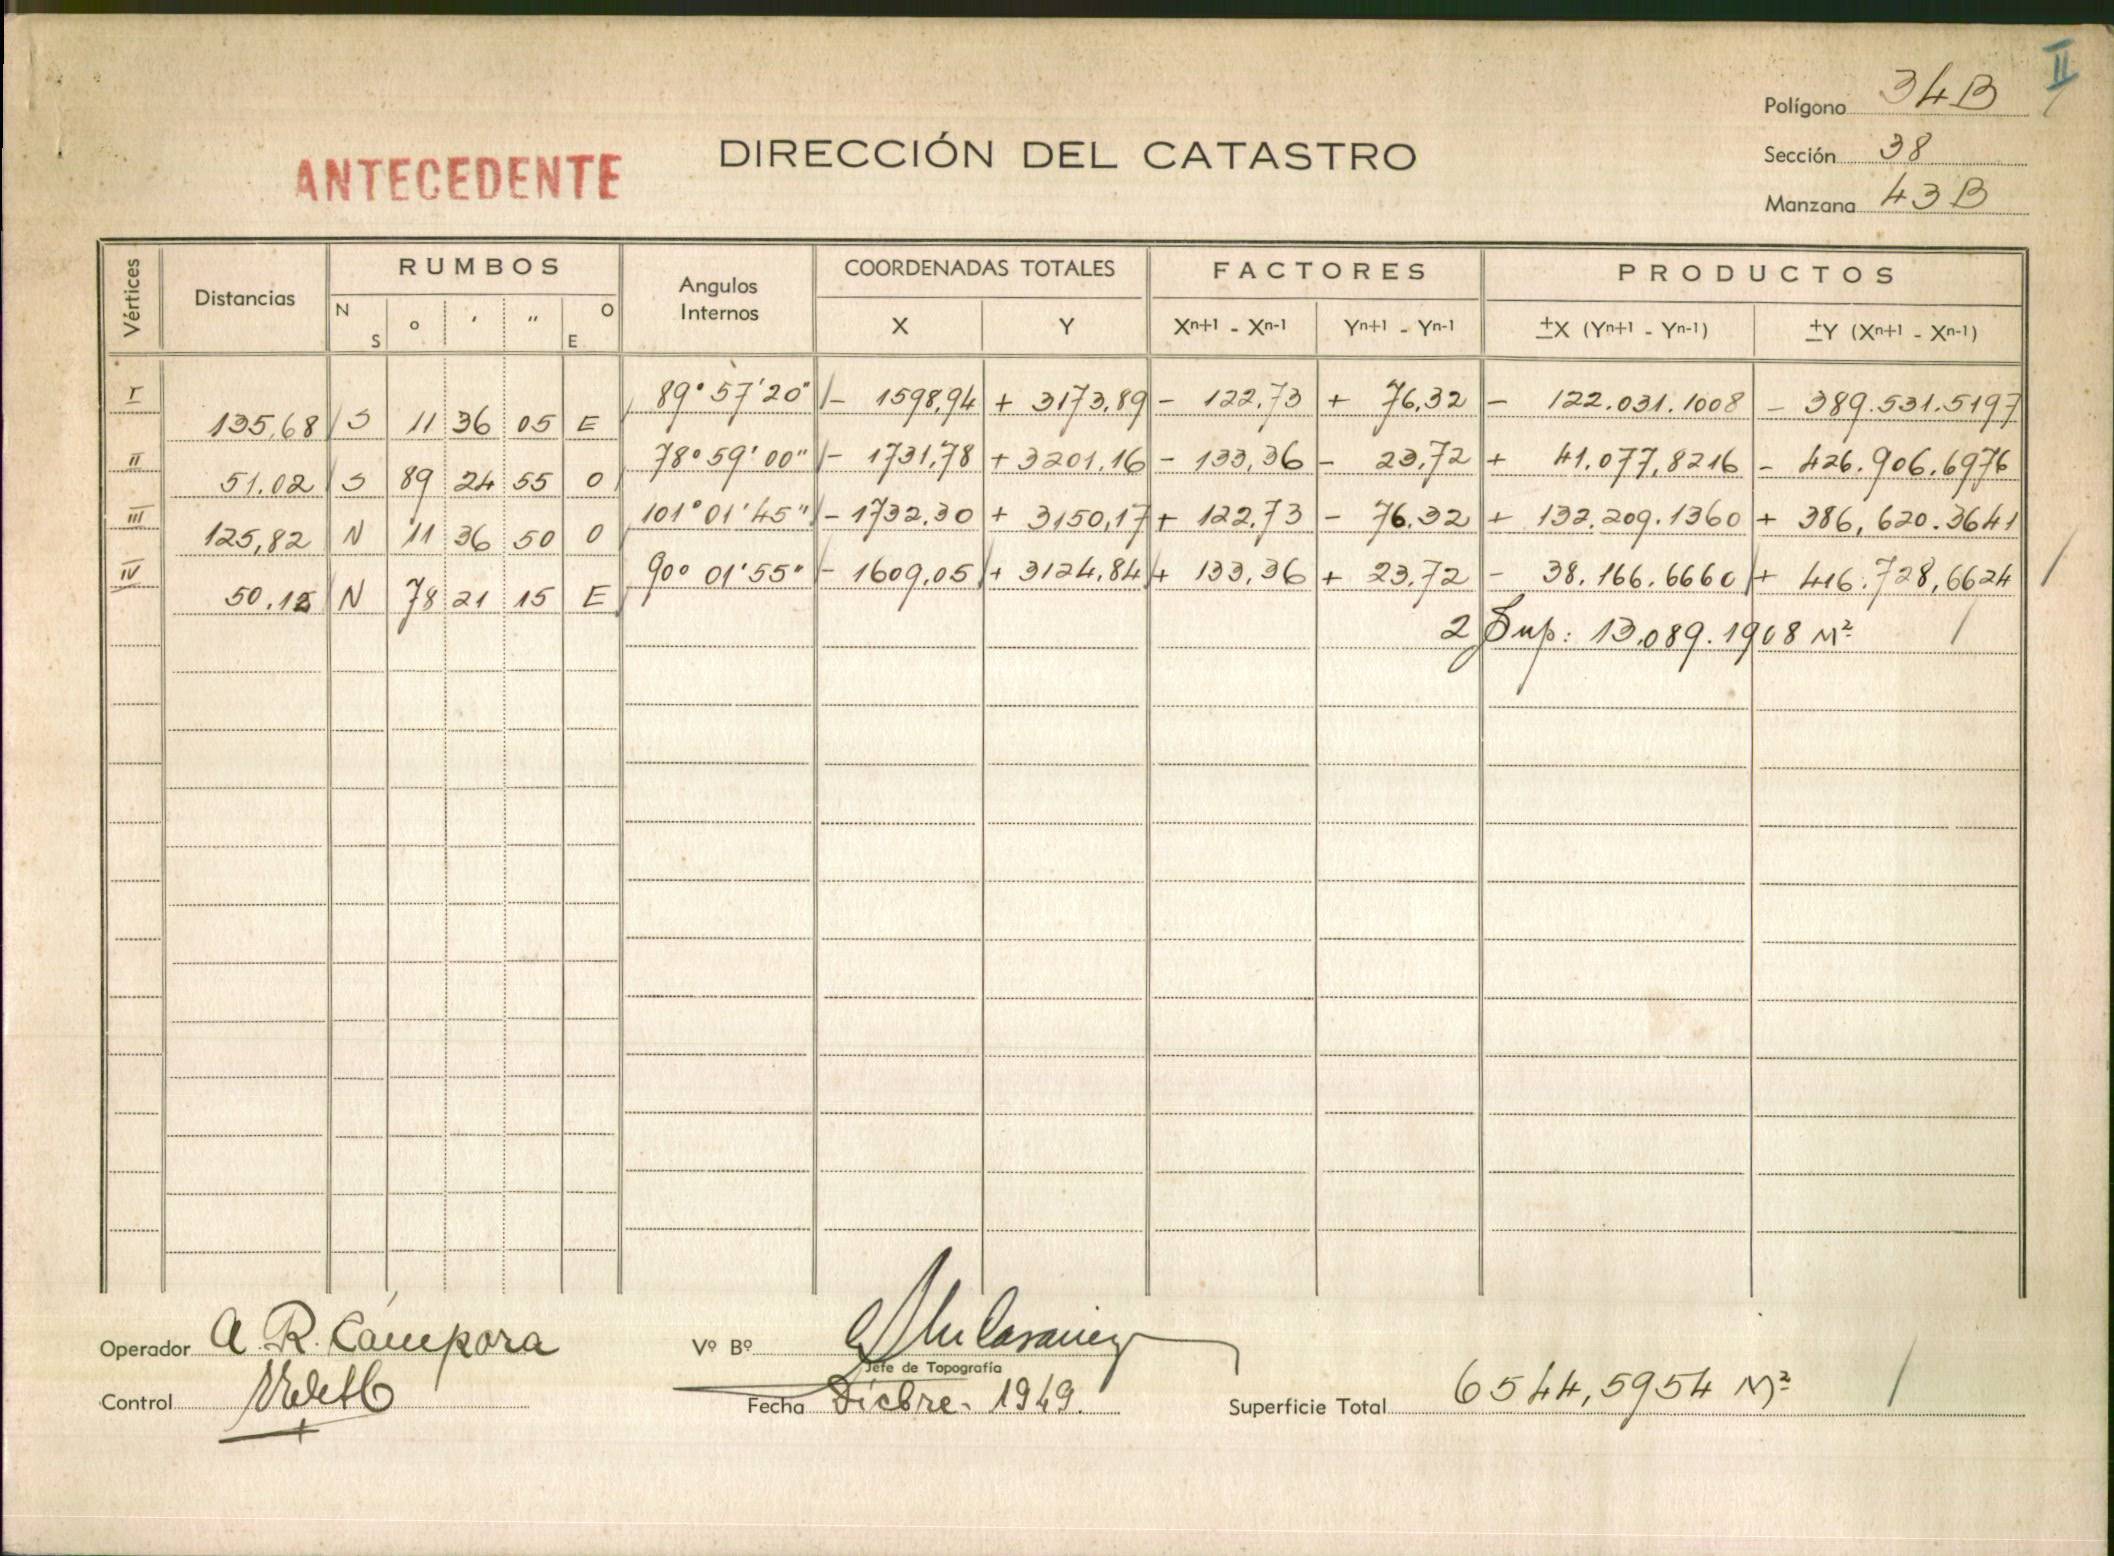 II
Polígono 34B
DIRECCIÓN DEL CATASTRO
ANTECEDENTE
Sección 38
Manzana 43B
Vértices Distancias RUMBOS Angulos Internos COORDENADAS TOTALES FACTORES PRODUCTOS
N S ° ' " O E X Y Xn+1 - Xn-1 Yn+1 - Yn-1 ±X (Yn+1 - Yn-1) ±Y (Xn+1 - Xn-1)
I 89° 57' 20" - 1598,94 + 3173,89 - 122,73 + 76,32 - 122.031.1008 - 389.531.5197
135,68 S 11 36 05 E
II 78° 59' 00" - 1731,78 + 3201,16 - 133,36 - 23,72 + 41.077,8216 - 426.906.6976
51.02 S 89 24 55 O
III 101° 01' 45" - 1732,30 + 3150,17 + 122,73 - 76.32 + 132.209.1360 + 386,620.3641
125,82 N 11 36 50 O
IV 90° 01' 55" - 1609,05 + 3124,84 + 133,36 + 23,72 - 38.166.6660 + 416.728,6624
50.15 N 78 21 15 E
2 Sup: 13.089.1908 M²
Operador A. R. Cámpora
Vº Bº
Jefe de Topografía
Control
Fecha Dicbre. 1949.
Superficie Total 6544,5954 M²